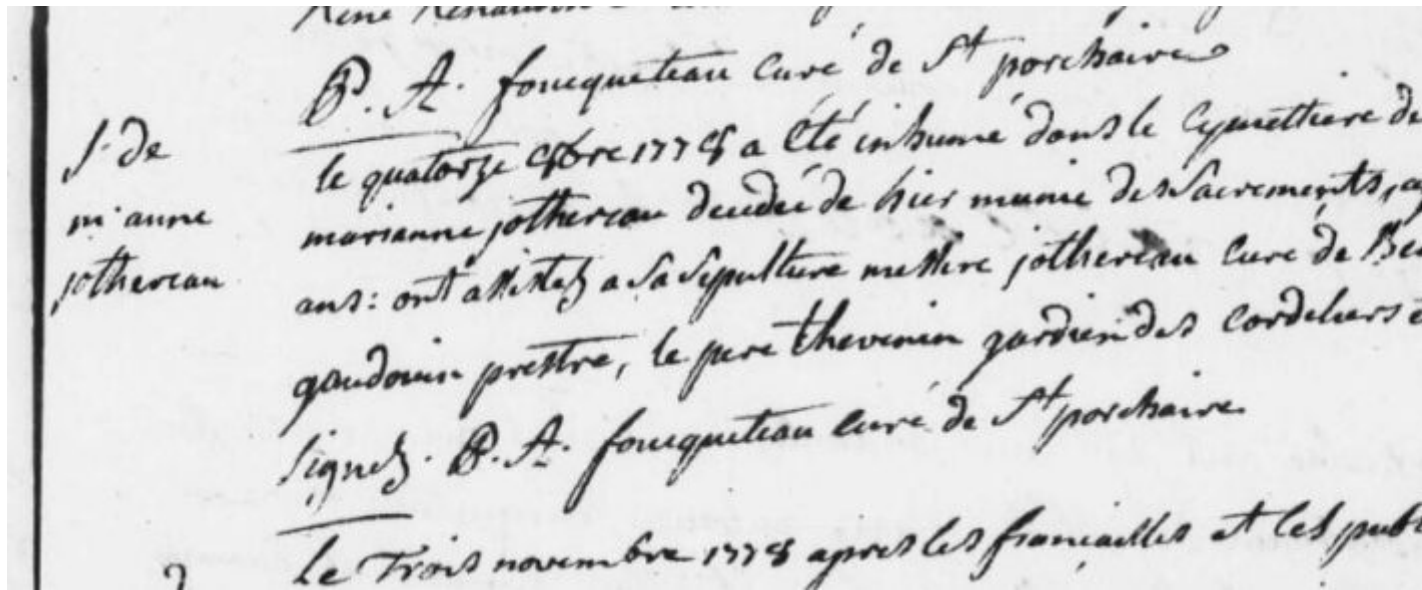 P. A. foucqueteau curé de St porchaire
S. de
m. anne
jothereau
le quatorze 8bre 1778 a été inhumé dans le Cymettiere de
marianne jothereau decedée de hier munie des Sacrements,
ans: ont assistez a sa sepulture messire jothereau curé de
gaudouin prestre, le pere thevenin gardien des cordeliers
signez. P. A. foucqueteau curé de St porchaire
Le Trois novembre 1778 apres les fiancailles et les